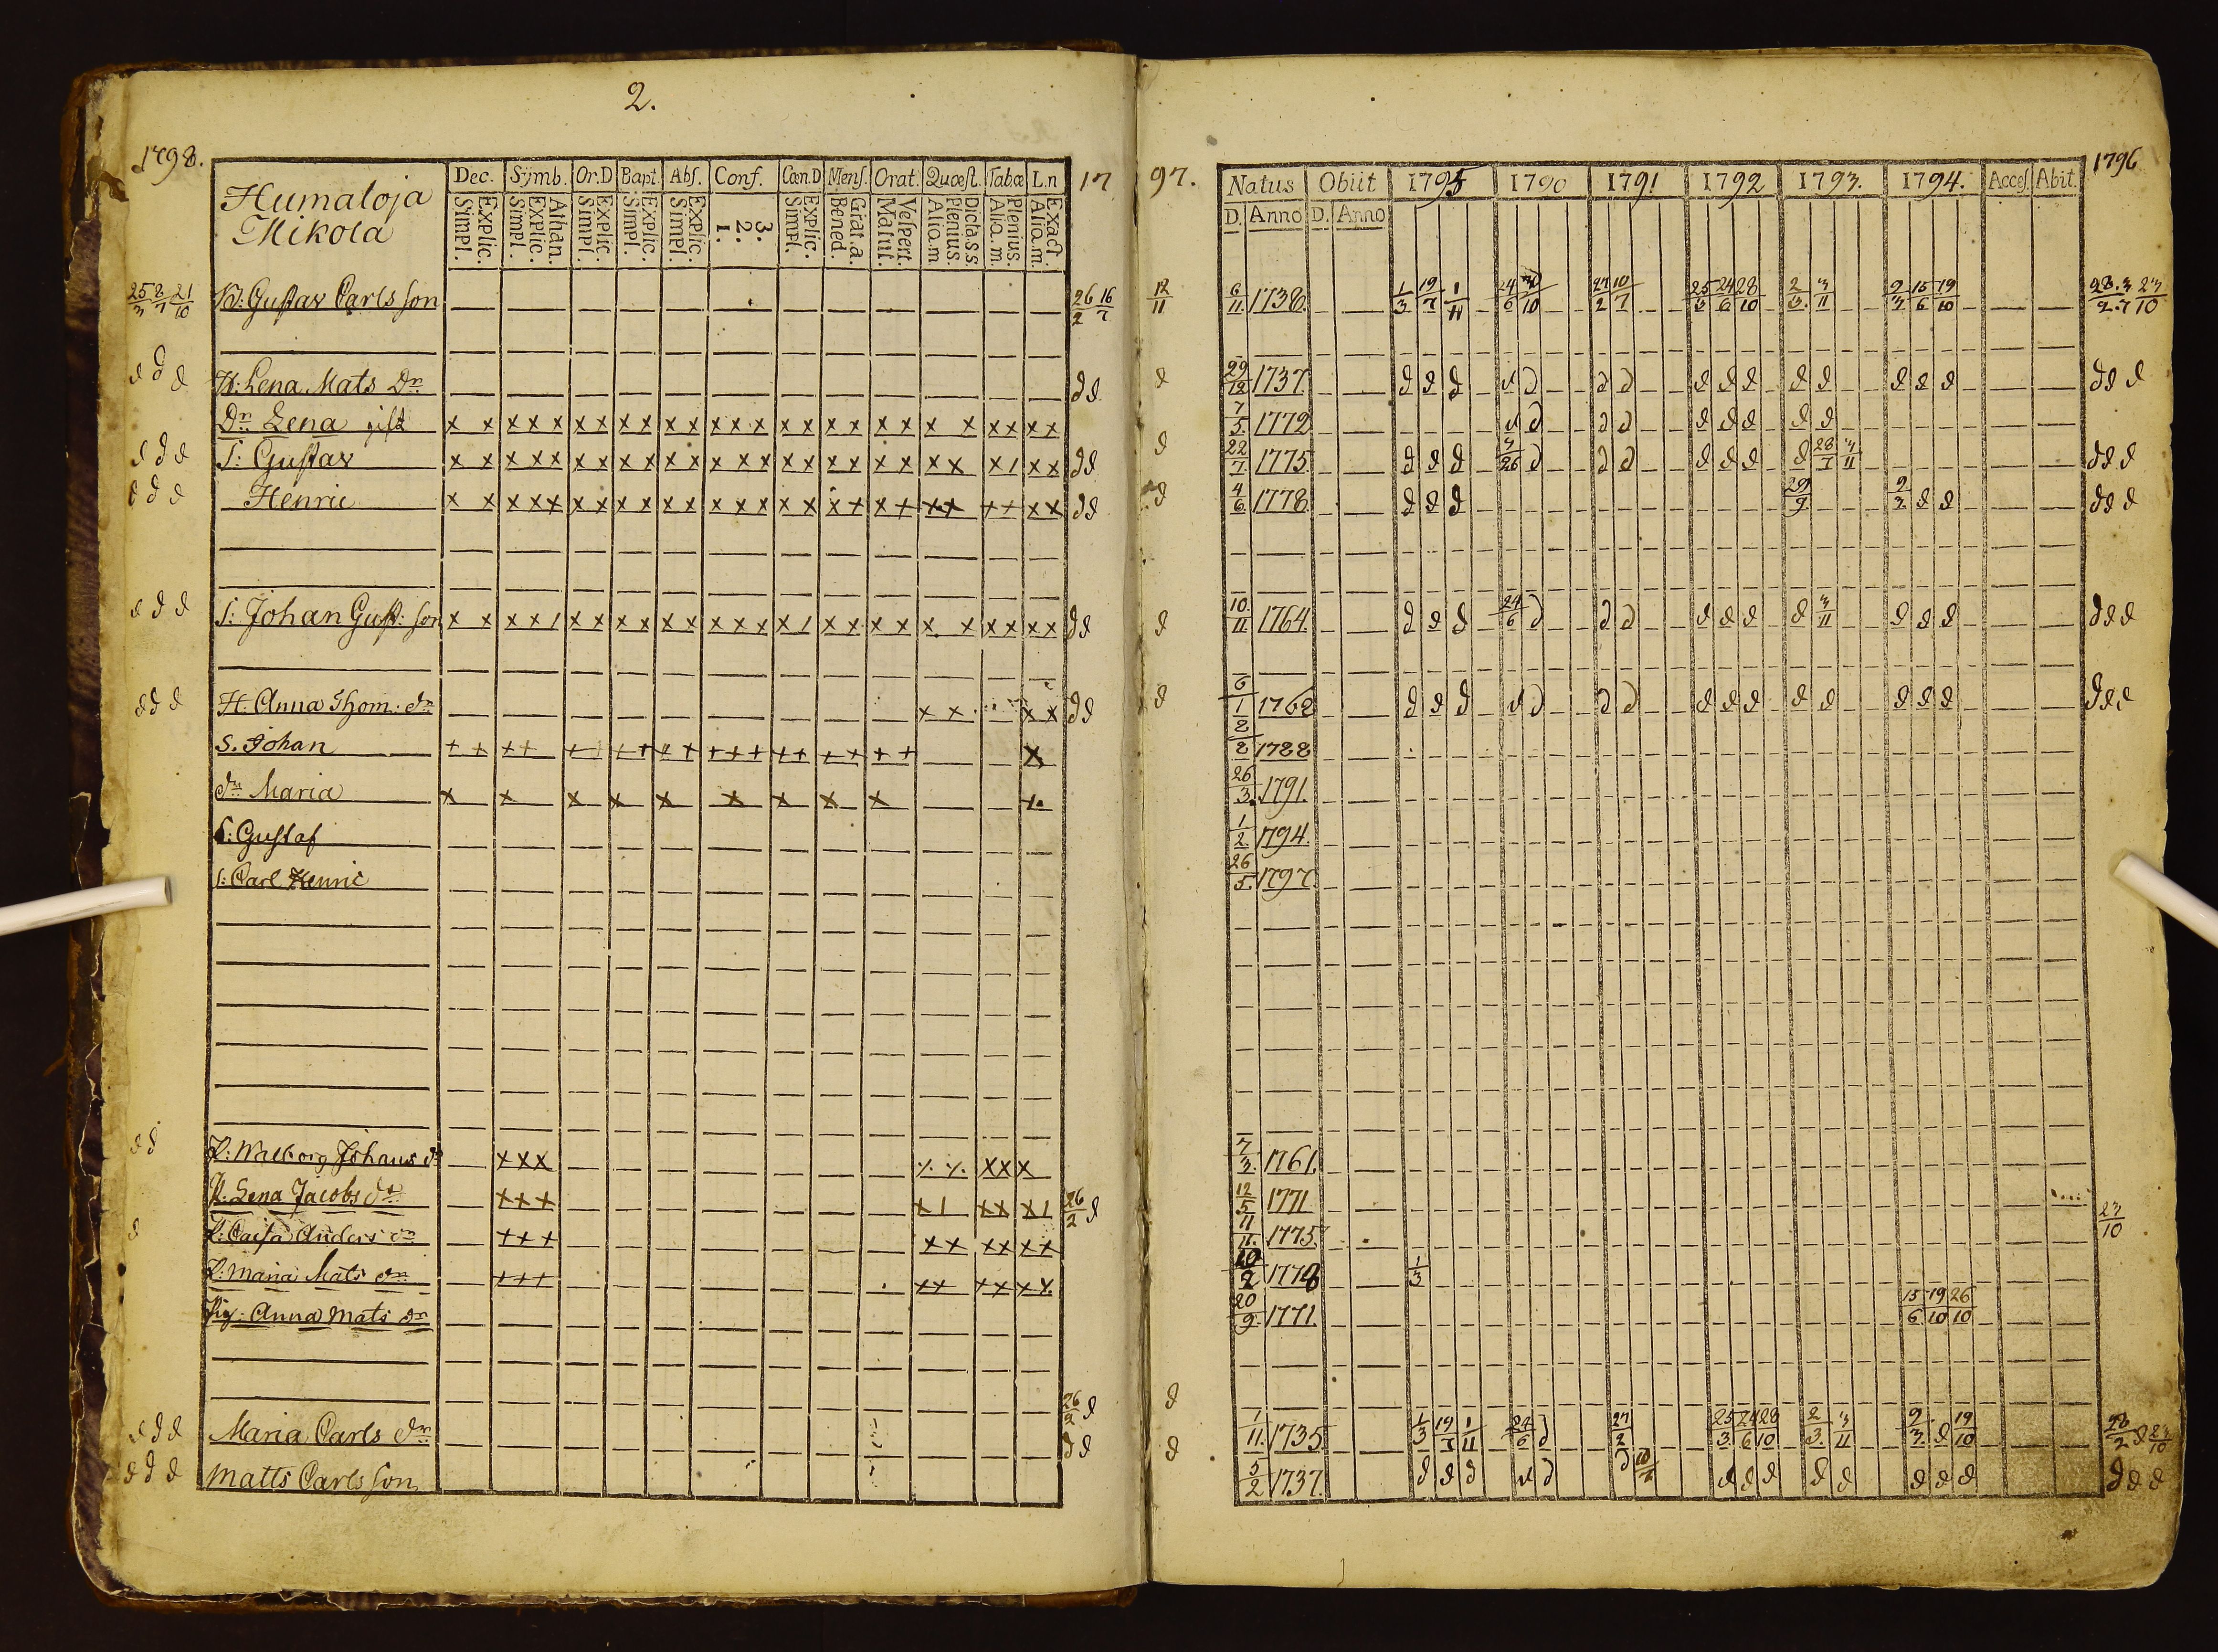 2.
1798.
Humaloja
Mikola
Dec. Symb. Or.D Bapt. Abſ. Conf. Cœn.D Menſ. Orat. Quæſt. Tabœ L.n
Explic. Simpl. Athan. Explic. Simpl. Explic. Simpl. Explic. Simpl. Explic. Simpl. 3. 2. 1. Explic. Simpl. Grat.a. Bened. Veſpert. Matut. Dicta.s.s. Plenius. Aliq.m Plenius. Aliq.m. Exact. Aliq.m.
17
25/3 8/7 21/10 B: Gustav Carls son 26/2 16/7
d d d H: Lena Mats Dr d d
Dr Lena gift x x x x x x x x x x x x x x x x x x x x x x x x x x
d d d S: Gustav x x x x x x x x x x x x x x x x x x x x x x x 1 x x d d
d d d Henric x x x x x x x x x x x x x x x x x x + x + x x + + x x d d
d d d S: Johan Gust: son x x x x 1 x x x x x x x x x x 1 x x x x x x x x x x d d
d d d H. Anna Thom: dr x x x x d d
S. Johan + + + + + + + + + + + + + + + + + + + x
dr Maria x x x x x x x x x
S: Gustaf
S: Carl Henric
d d P: Walborg Johans dr x x x x x x
P: Lena Jacobs dr x x x x 1 x x x 1 26/2 d
d P: Caisa Anders dr + + + x x x x x x
P: Maria Mats dr + + + x x x x x x
Pig: Anna Mats dr
26/2 d
d d d Maria Carls dr d d
d d d Matts Carls son
97.
1796
Natus Obiit 1795 1790 1791 1792 1793. 1794. Acceſ. Abit.
D. Anno D. Anno
12/11 6/11 1738. 1/3 19/7 1/11 24/6 27/2 10/7 25/3 24/6 28/10 2/3 3/11 9/3 15/6 19/10 28/2 3/7 23/10
d 29/12 1737. d d d d d d d d d d d d d d d d d d
7/5 1772 d d d d d d d d d
d 22/7 1775. d d d d d d d d d d 28/7 3/11 d d d
d 4/6 1778. d d d 29/9 9/3 d d d d d
d 10/11 1764. d d d 24/6 d d d d d d d 3/11 d d d d d d
d 6/1 1762 d d d d d d d d d d d d d d d d d d
8/8 1788
26/3 1791.
1/2 1794.
26/5 1797.
7/3 1761.
12/5 1771
11/11 1775. 23/10
2 1778 1/3
20/9 1771. 15/6 19/10 26/10
d
d 1/11 1735. 1/3 19/7 1/11 24/6 d 27/2 25/3 24/6 28/10 2/3 3/11 9/3 d 19/10 28/2 d 23/10
5/2 1737. d d d d d d d d d d d d d d d d d